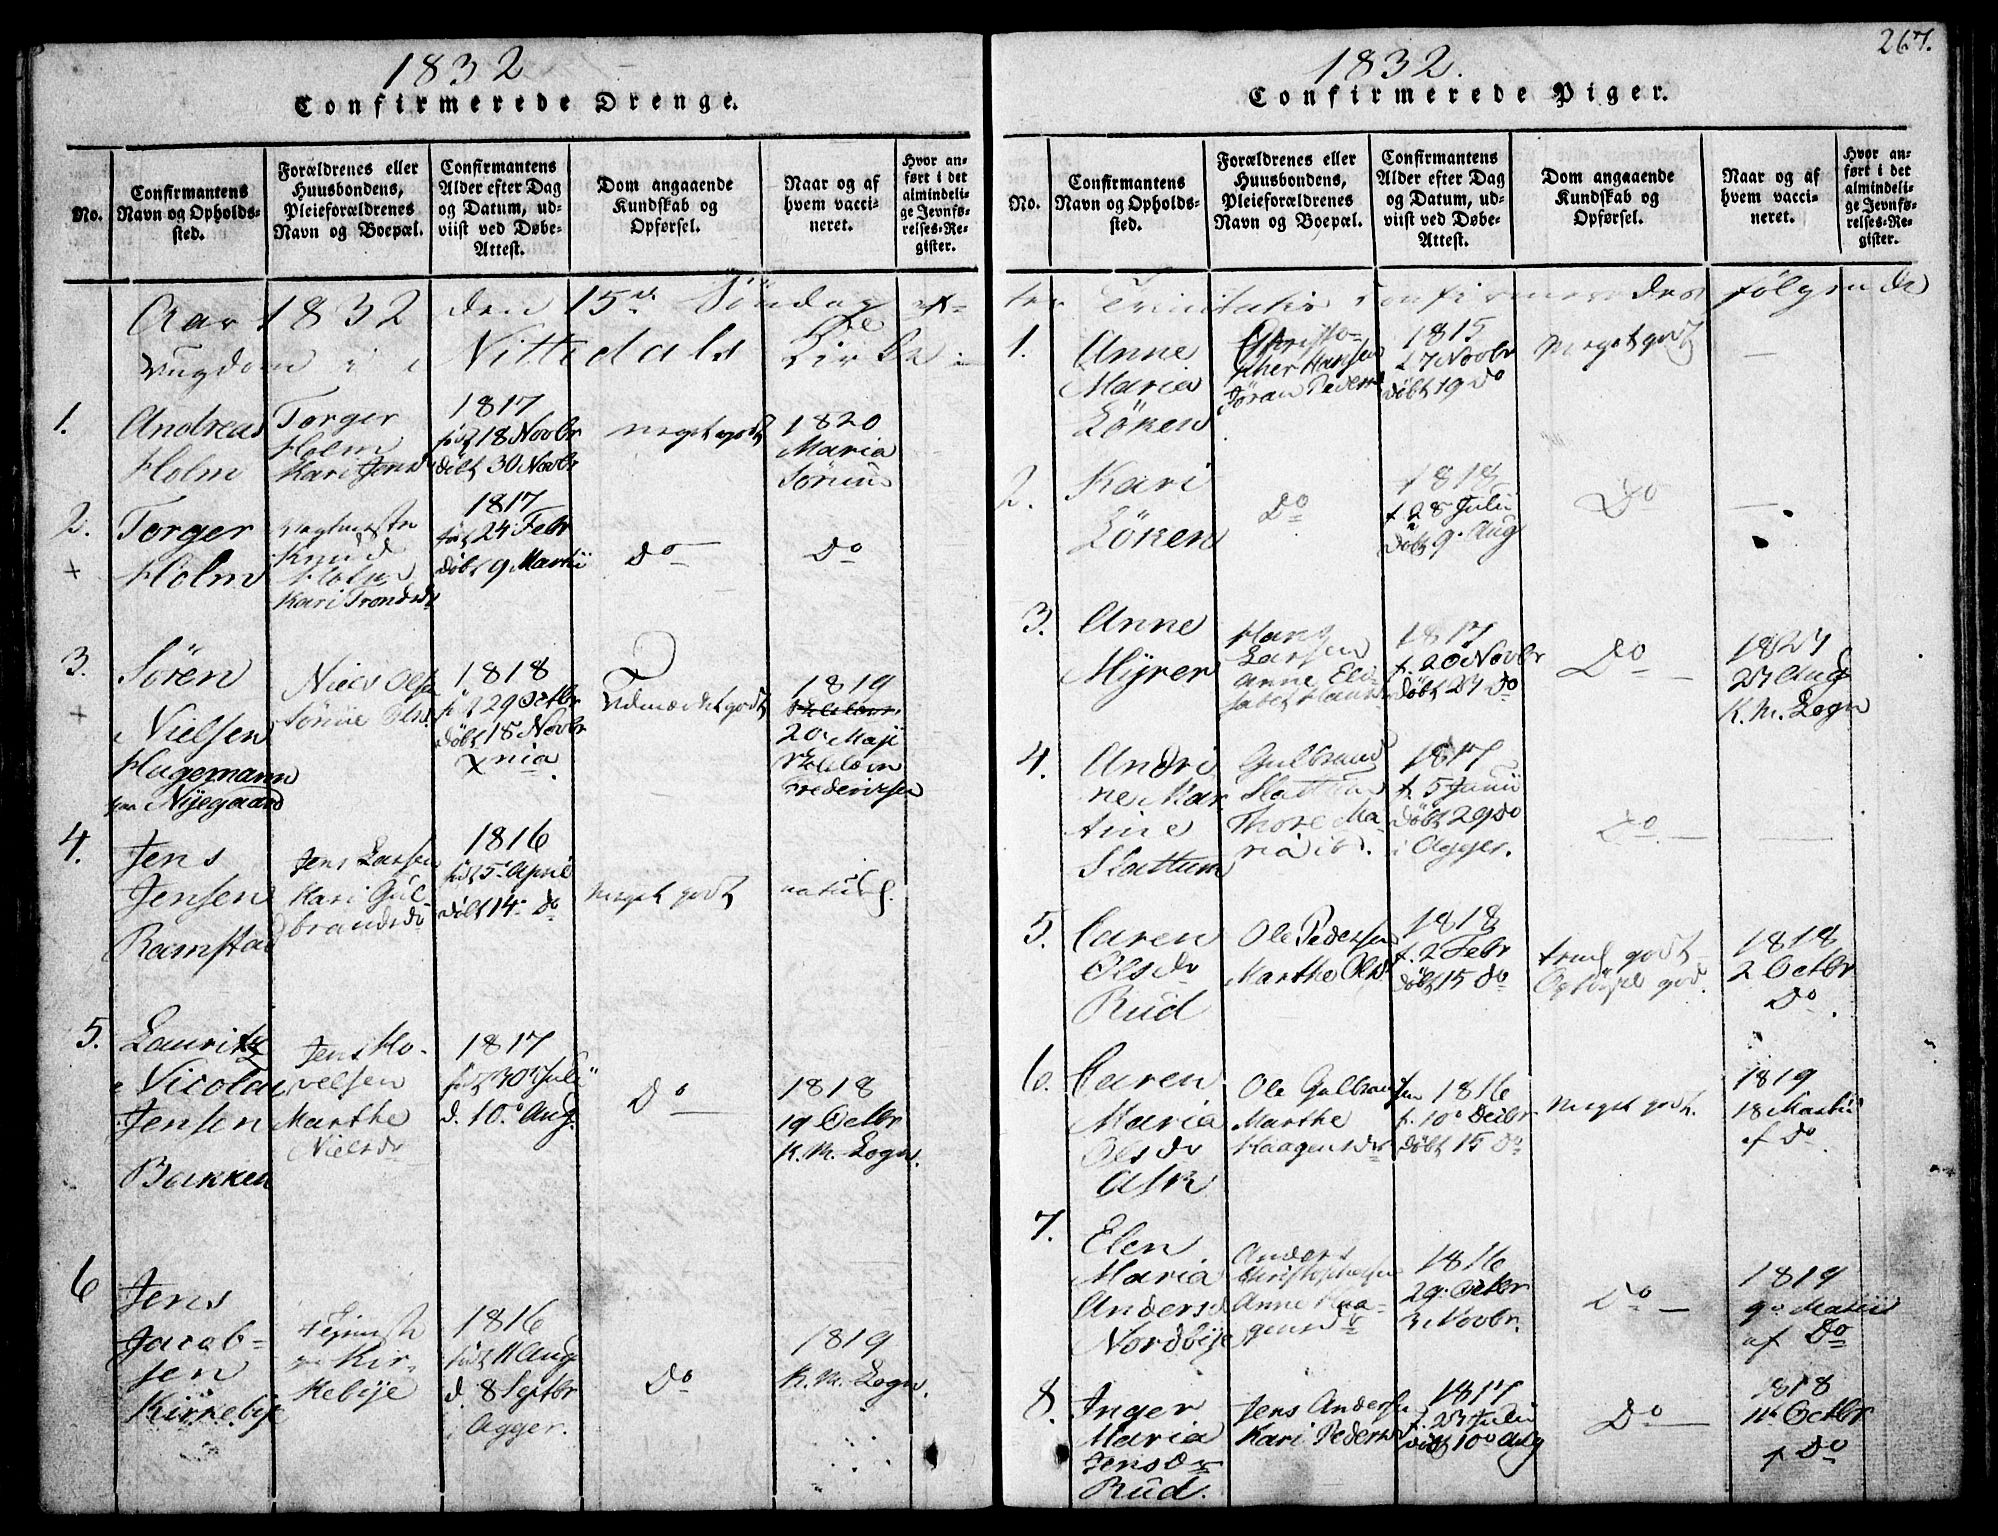 1832
Confirmerede Drenge.
No.
Confirmantens
Navn og Opholds-
sted.
Forældrenes eller
Huusbondens,
Pleieforældrenes
Navn og Boepæl.
Confirmantens
Alder efter Dag
og Datum, ud-
viist ved Døbe-
Attest.
Dom angaaende
Kundskab og
Opførsel.
Naar og af
hvem vacci-
neret.
Hvor an-
ført i det
almindeli-
ge Jevnfø-
relses-Re-
gister.
Aar 1832 den 15de Søndag ef-
Ungdom i Nittedals Kirke
1.
Andreas
Holm
Torger
Holm
Kari Jensd
1817
født 18 Novbr
døbt 30 Novbr
meget godt
1820
Maria
Sørum
2.
+
Torger
Holm
Knud
Holm
Kari Trondsdr
1817
født 24 Febr
døbt 9 Martii
Do
Do
3.
+
Sören
Nielsen
Hagemann
paa Nyegaard
Niels Olsen
1818
født 29 Octbr
døbt 15 Novbr
Xnia
Udmærket godt
1819
20 Maji
Frederichsen
4.
Jens
Jensen
Ramstad
Jens Larsen
Kari Gul-
brandsdr
1816
født 5 April
døbt 14 Do
Meget godt
naturl.
5.
Lauritz
Nicolai
Jensen
Bakken
Jens Ho-
velsen
Marthe
Nielsdr
1817
født 30 Juli
d. 10 Aug.
Do
1818
19 Octbr
K. M. Logn.
6
Jens
Jacob-
sen
Kirkebye
Kir-
kebye
1816
født 11 Aug
d. 8 Septbr
i Agger.
Do
1819
K. M. Logn.
267.
1832.
Confirmerede Piger.
No.
Confirmantens
Navn og Opholds-
sted.
Forældrenes eller
Huusbondens,
Pleieforældrenes
Navn og Boepæl.
Confirmantens
Alder efter Dag
og Datum, ud-
viist ved Døbe-
Attest.
Dom angaaende
Kundskab og
Opførsel.
Naar og af
hvem vacci-
neret.
Hvor an-
ført i det
almindeli-
ge Jevnfø-
relses-Re-
gister.
ter Trinitatis Confirmeredes følgende
1.
Anne
Maria
Löken
Christo-
pher Hansen
Jöran Pedersd
1815
f. 7 Novbr
døbt 19 Do
Meget godt
—
2.
Kari
Löken
Do
1818
f. 28 Julii
døbt 9. Aug
Do
—
3.
Anne
Myrer
Hans
Larsen
Anne Eli-
sabet Hansd
1817
f. 20 Novbr
døbt 27 Do
Do
1827
27 Aug
K. M. Logn
4.
Andri
ne Mar
tine
Slattum
Gulbrand
Slattum
Thore Ma-
ria ibd.
1817
f. 5 Junii
døbt 29 Do
i Agger.
Do
—
5.
Caren
Olsdr
Rud
Ole Pedersen
Marthe Olsd
1818
f. 2 Febr
døbt 15 Do
godt
Opførsel god.
1818
2 Octbr
Do
6.
Caren
Maria
Olsdr
Ask
Ole Gulbrandsen
Marthe
Haagensdr
1816
f. 10 Decbr
døbt 15 Do
Meget godt.
1819
18 Martii
af Do
7.
Elen
Maria
Andersd
Nordbye
Anders
Christophersen
Anne Haa-
gensdr
1816
29. Octbr
3 Novbr.
Do
1819
9 Martii
af Do
8.
Inger
Maria
Jensdr
Rud.
Jens Andersen
Kari Pedersd
1817
f. 27 Julii
døbt 10 Aug
Do
1818
11 Octbr
f Do